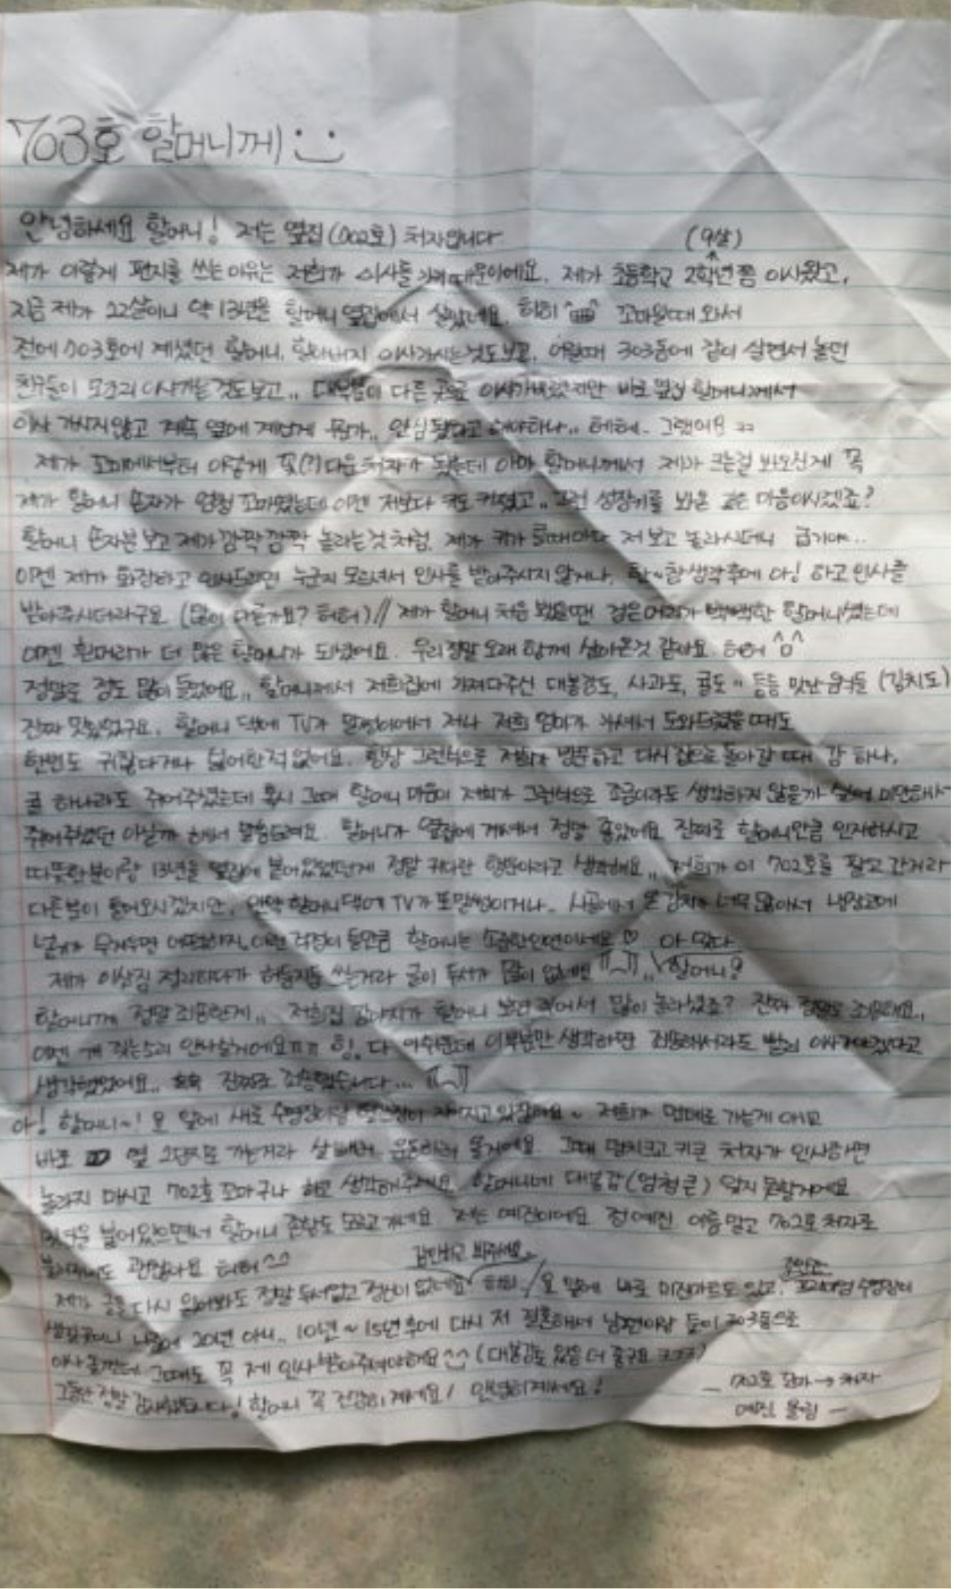 703호 할머니께 :)
안녕하세요 할머니! 저는 옆집(702호) 처자입니다
(9살)
제가 이렇게 편지를 쓰는 이유는 저희가 이사를 가기 때문이에요. 제가 초등학교 2학년쯤 이사왔고,
지금 제가 22살이니 약 13년을 할머니 옆집에서 살았네요. 히히 꼬마일때 와서
전에 703호에 계셨던 할머니, 할아버지 이사가시는것도보고, 어릴때 303동에 같이 살면서 놀던
친구들이 이사가는것도보고,, 대부분이 다른 곳으로 이사가버렸지만 바로 옆집 할머니께서
이사 가시지않고 계속 옆에 계셨던게 뭔가,, 안심됐다고 해야하나,, 헤헤- 그랬어요 ㅋㅋ
제가 꼬마에서부터 이렇게 다 큰 처자가 됐는데 아마 할머니께서 제가 크는걸 봐오신게 꼭
제가 할머니 손자가 엄청 꼬마였는데 이젠 저보다 키도 커졌고,, 그런 성장기를 봐온 같은 마음이시겠죠?
할머니 손자분 보고 제가 깜짝깜짝 놀라는것처럼, 제가 키가 클때마다 저 보고 놀라시더니 급기야..
이젠 제가 화장하고 인사드리면 누군지 모르셔서 인사를 받아주시지 않거나, 한~참생각후에 아! 하고 인사를
받아주시더라구요. (많이 다른가요? 허허)// 제가 할머니 처음 봤을땐 검은머리가 빽빽한 할머니셨는데
이젠 흰머리가 더 많은 할머니가 되셨어요. 우리정말 오래 함께 살아온것 같아요. 허허 ^^
정말로 정도 많이 들었어요,, 할머니께서 저희집에 가져다주신 대봉감도, 사과도, 귤도,, 등등 맛난 음식들 (김치도)
진짜 맛있었구요. 할머니 댁에 TV가 말썽이어서 저나 저희 엄마가 가서 도와드렸을때도
한번도 귀찮다거나 싫어한적 없어요. 항상 그런식으로 저희가 방문하고 다시 집으로 돌아갈 때 감 하나,
귤 하나라도 쥐어주셨는데 혹시 그때 할머니 마음이 저희가 그런식으로 조금이라도 생각하지 않을까 싶어 미안해서
쥐어주셨던 아닐까 해서 말씀드려요. 할머니가 옆집에 계셔서 정말 좋았어요 진짜로 할머니만큼 인자하시고
따뜻한분이랑 13년을 옆집에 붙어있었던게 정말 커다란 행운이라고 생각해요,, 저희가 이 702호를 팔고 간거라
다른분이 들어오시겠지만, 만약 할머니댁에 TV가 또말썽이거나.. 시골에서 온 김치가 너무 많아서 냉장고에
넣기가 무거우면 어떡하지, 이런 걱정이 들만큼 할머니는 소중한인연이세요♡ 아 맞다
제가 이삿짐 정리하다가 허둥지둥 쓰는거라 글이 두서가 많이 없네요 ㅠ_ㅠ,, 할머니?
할머니께 정말 죄송한게,, 저희집 강아지가 할머니 보면 짖어서 많이 놀라셨죠? 진짜 정말로 죄송해요,,
이젠 개 짖는소리 안나실거에요ㅠㅠ 힝. 다 아쉬운데 이부분만 생각하면 죄송해서라도 빨리 이사가야겠다고
생각했었어요,, 흑흑 진짜로 죄송했습니다... ㅠ_ㅠ
아! 할머니~! 요 앞에 새로 수영장이랑 헬스장이 지어지고 있잖아요~ 저희가 먼데로 가는게 아니고
바로 옆 2단지로 가는거라 살빼러 운동하러 올거에요. 그때 덩치크고 키큰 처자가 인사하면
놀라지 마시고 702호 꼬마구나 하고 생각해주세요. 할머니네 대봉감(엄청큰) 잊지 못할거에요
붙어있으면서 할머니 존함도 모르고 가네요 저는 예진이에요. 정예진 이름말고 702호 처자로
관찮아요 허허^^
감안하고 봐주세요
제가 글을 다시 읽어봐도 정말 두서없고 정신이 없네요 히히/ 요 앞에 바로 미진마트도 있고, 수영장이
생길꺼니 나중에 20년 아니,, 10년~15년후에 다시 저 결혼해서 남편이랑 둘이 303동으로
이사올껀데 그때도 꼭 제 인사받아주셔야해요 ^^ (대봉감도 있음 더 좋구요 ㅋㅋㅋ)
그동안 정말 감사했습니다! 할머니 꼭 건강히 계세요! 안녕히계세요!
— 702호 꼬마 → 처자
예진 올림 —